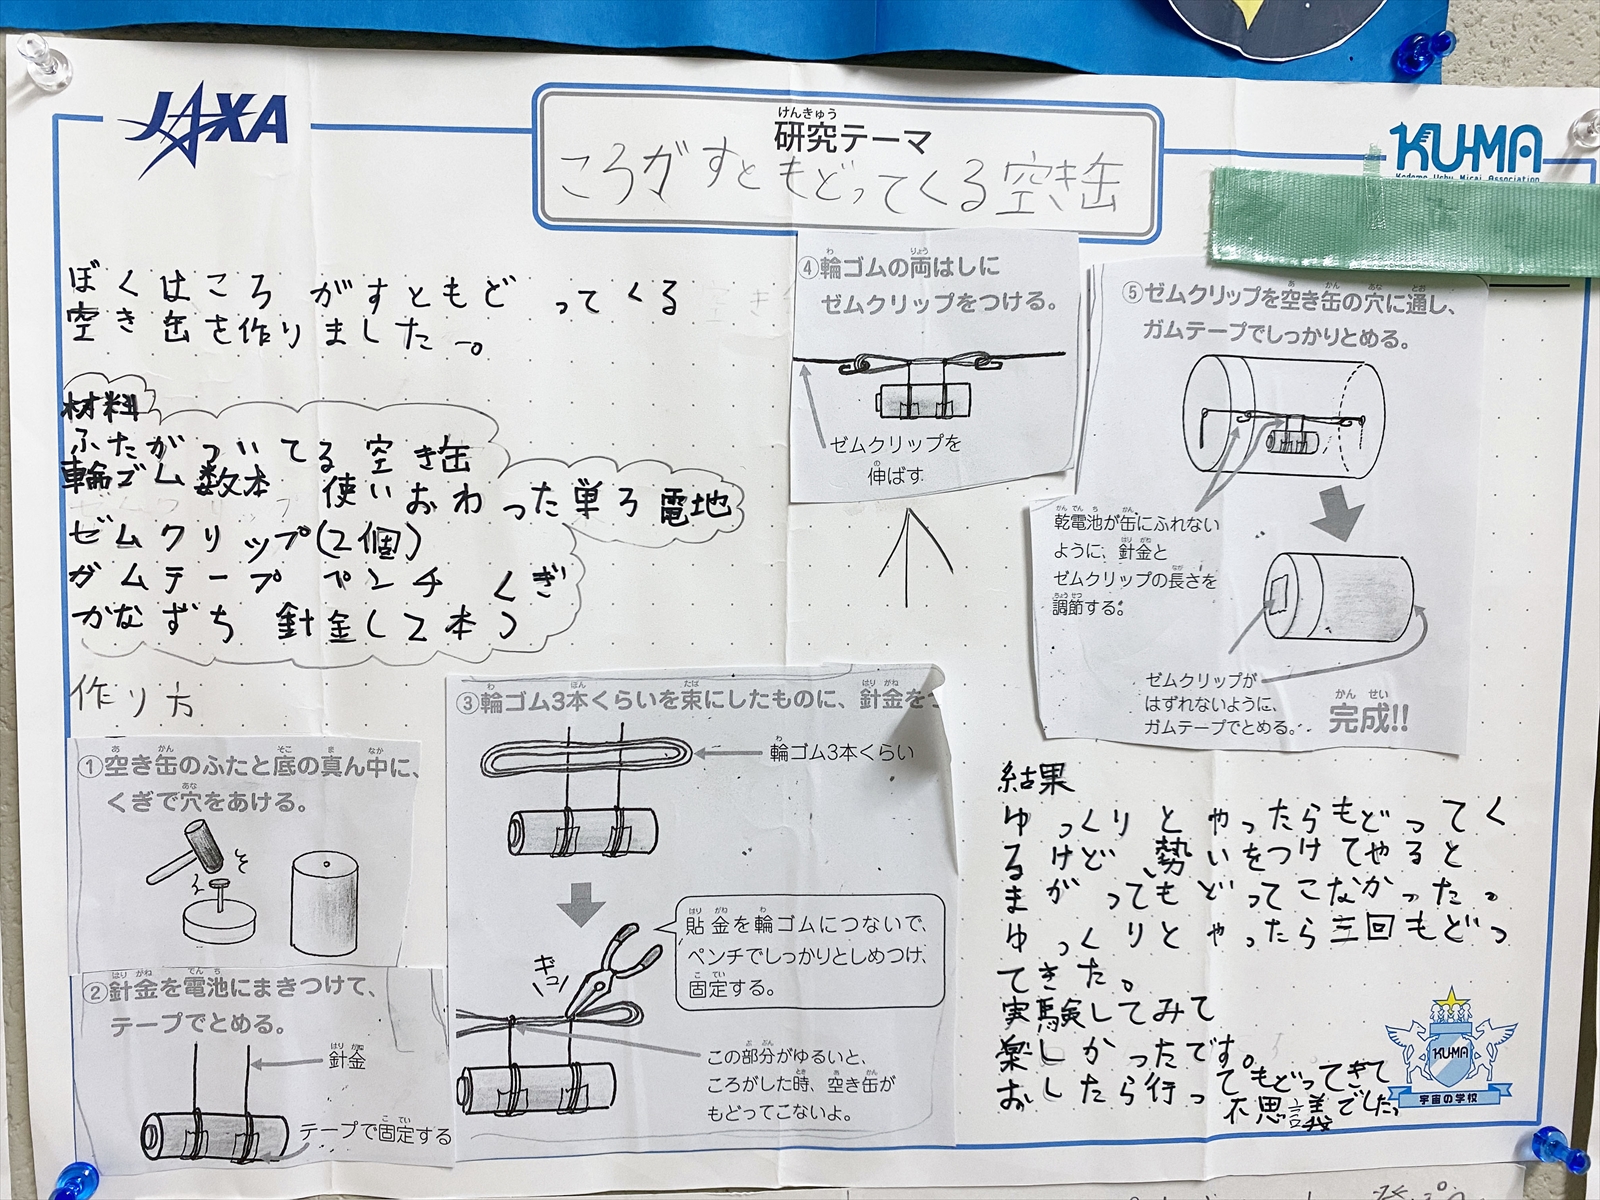 JAXA
研究テーマ
けんきゅう
ころがすともどってくる空き缶
KU-MA
Kodomo Uchu Mirai Association
ぼくはころがすともどってくる
空き缶を作りました。
材料
ふたがついてる空き缶
輪ゴム数本 使いおわった単3電地
ゼムクリップ(2個)
ガムテープ ペンチ くぎ
かなずち 針金(2本)
作り方
①空き缶のふたと底の真ん中に、
くぎで穴をあける。
②針金を電池にまきつけて、
テープでとめる。
針金
テープで固定する
③輪ゴム3本くらいを束にしたものに、針金を
輪ゴム3本くらい
貼金を輪ゴムにつないで、
ペンチでしっかりとしめつけ、
固定する。
ギュッ
この部分がゆるいと、
ころがした時、空き缶が
もどってこないよ。
④輪ゴムの両はしに
ゼムクリップをつける。
ゼムクリップを
伸ばす
⑤ゼムクリップを空き缶の穴に通し、
ガムテープでしっかりとめる。
乾電池が缶にふれない
ように、針金と
ゼムクリップの長さを
調節する。
ゼムクリップが
はずれないように、
ガムテープでとめる。
完成!!
結果
ゆっくりとやったらもどってく
るけど、勢いをつけてやると
まがってもどってこなかった。
ゆっくりとやったら三回もどっ
てきた。
実験してみて
楽しかったです。
おしたら行ってもどってきて
不思議でした。
KU-MA
宇宙の学校